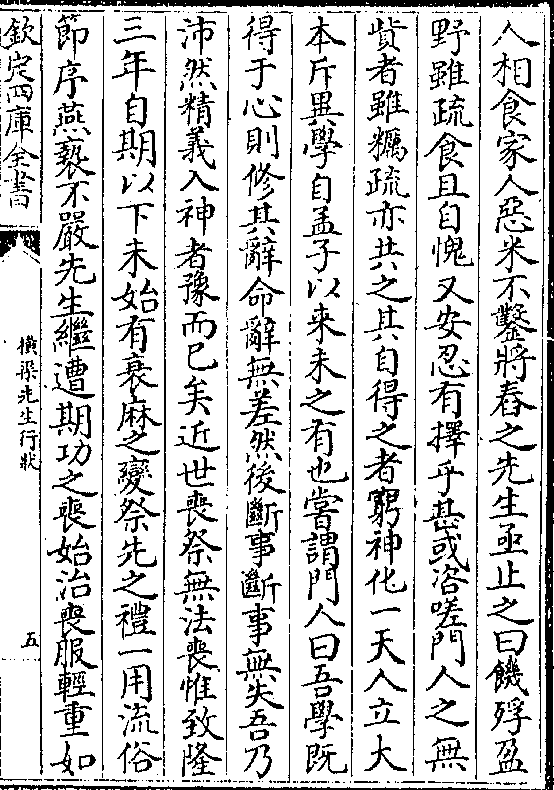 人相食家人惡米不鑿將舂之先生亟止之曰饑殍盈
野雖疏食且自愧又安忍有擇乎甚或咨嗟門人之無
貲者雖糲疏亦共之其自得之者窮神化一天人立大
本斥異學自孟子以来未之有也嘗謂門人曰吾學既
得于心則修其辭命辭無差然後斷事斷事無失吾乃
沛然精義入神者豫而已矣近世喪祭無法喪惟致隆
三年自期以下未始有衰麻之變祭先之禮一用流俗
節序燕䙝不嚴先生繼遭期功之喪始治喪服輕重如
欽定四庫全書
橫渠先生行狀
五